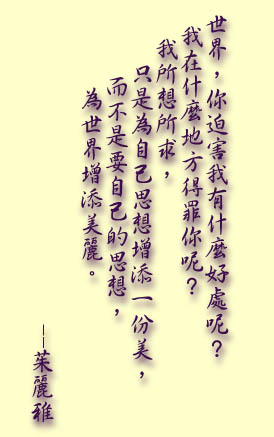 世界，你迫害我有什麼好處呢？
我在什麼地方得罪你呢？
我所想所求，
只是為自己思想增添一份美，
而不是要自己的思想，
為世界增添美麗。
——茱麗雅